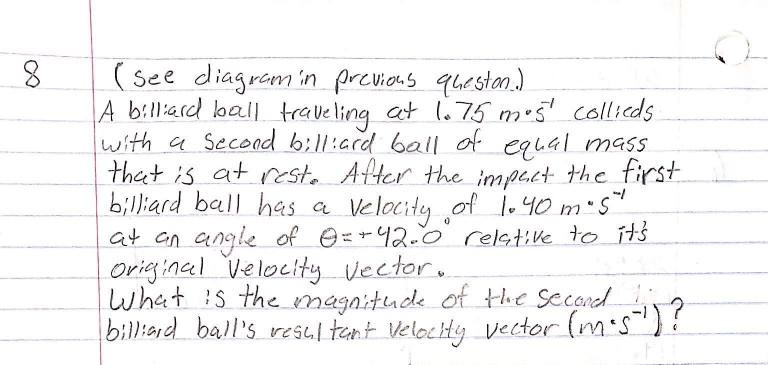 8 (see diagram in previous queston.)
A billiard ball traveling at 1.75 m•s⁻¹ collieds
with a second billiard ball of equal mass
that is at rest. After the impact the first
billiard ball has a velocity of 1.40 m•s⁻¹
at an angle of θ=+42.0° relative to it's
original velocity vector.
What is the magnitude of the second
billiard ball's resultant velocity vector (m•s⁻¹)?